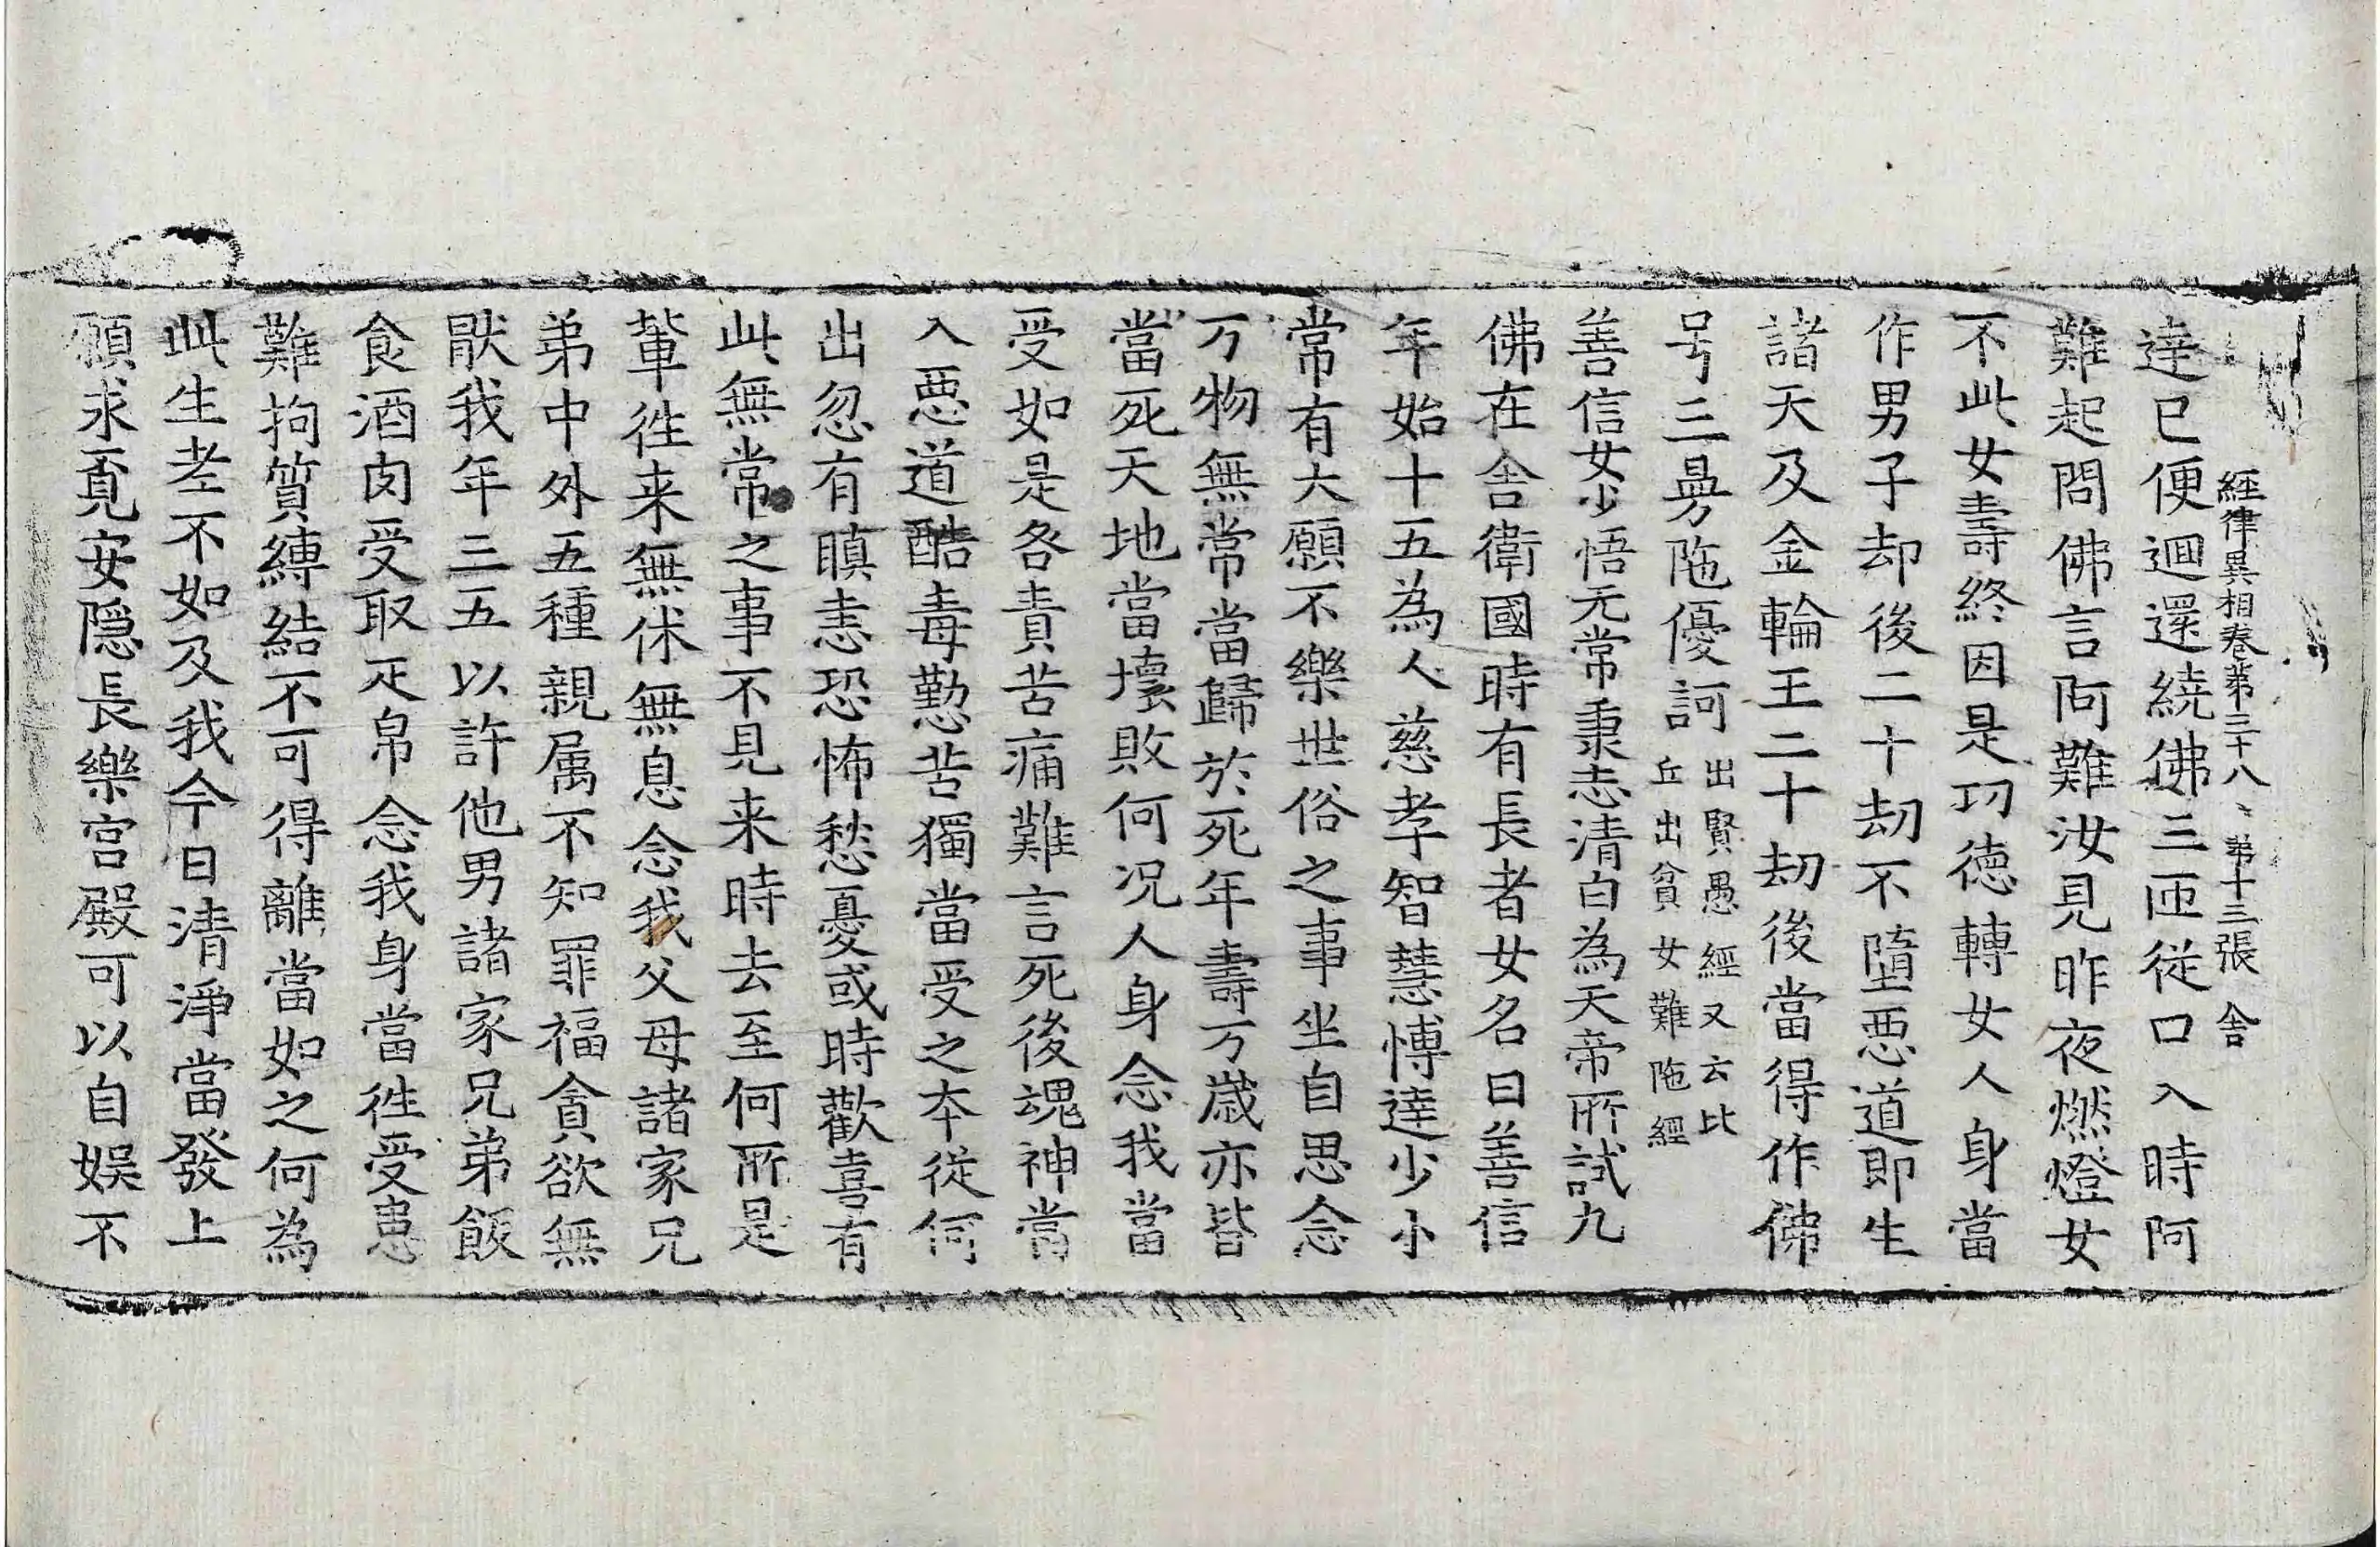 經律異相卷第三十八 第十三張 舍
達已便迴還繞佛三匝從口入時阿
難起問佛言阿難汝見昨夜燃燈女
不此女壽終因是功德轉女人身當
作男子却後二十劫不墮惡道即生
諸天及金輪王二十劫後當得作佛
号三曼陁優訶出賢愚經又云比
丘出貧女難陁經
善信女少悟无常秉志清白為天帝所試九
佛在舍衛國時有長者女名曰善信
年始十五為人慈孝智慧博達少小
常有大願不樂世俗之事坐自思念
万物無常當歸於死年壽万歲亦皆
當死天地當壞敗何况人身念我當
受如是各責苦痛難言死後魂神當
入惡道酷毒懃苦獨當受之本從何
出忽有瞋恚恐怖愁憂或時歡喜有
此無常之事不見来時去至何所是
輩徃来無休無息念我父母諸家兄
弟中外五種親属不知罪福貪欲無
猒我年三五以許他男諸家兄弟飯
食酒肉受取疋帛念我身當徃受患
難拘質縛結不可得離當如之何為
此生孝不如及我今日清淨當發上
願求覓安隱長樂宮殿可以自娱不